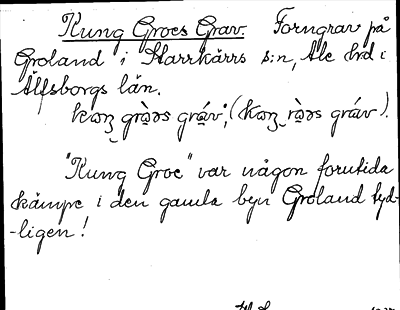 Kung Groes Grav. Forngrav på
Groland i Starrkärrs s:n, Ale hrd i
Älfsborgs län.
"Kung Groe" var någon forntida
kämpe i den gamla byn Groland tyd-
-ligen!